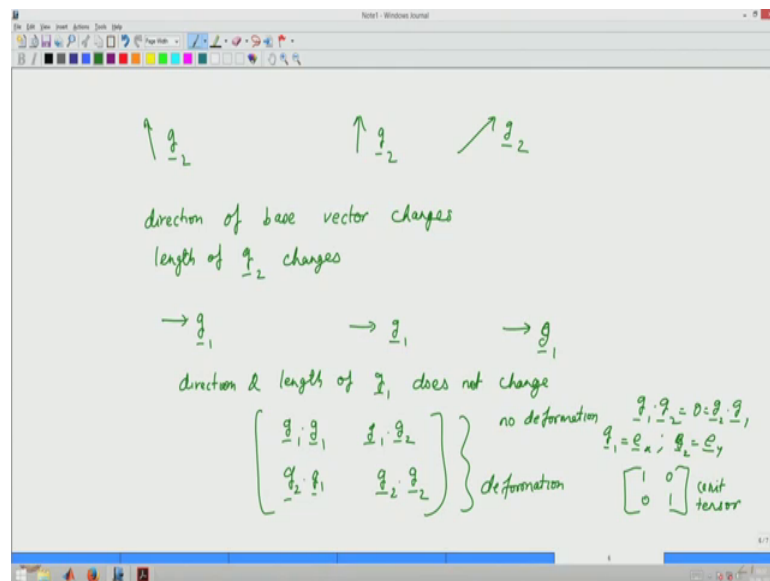 Note1 - Windows Journal
File Edit View Insert Actions Tools Help
Page Width
B I
g₂ g₂ g₂
direction of base vector changes
length of g₂ changes
→ g₁ → g₁ → g₁
direction & length of g₁ does not change
g₁·g₁ g₁·g₂
g₂·g₁ g₂·g₂
no deformation g₁·g₂ = 0 = g₂·g₁
g₁ = eₓ ; g₂ = e_y
deformation
1 0
0 1
unit
tensor
6/7
6